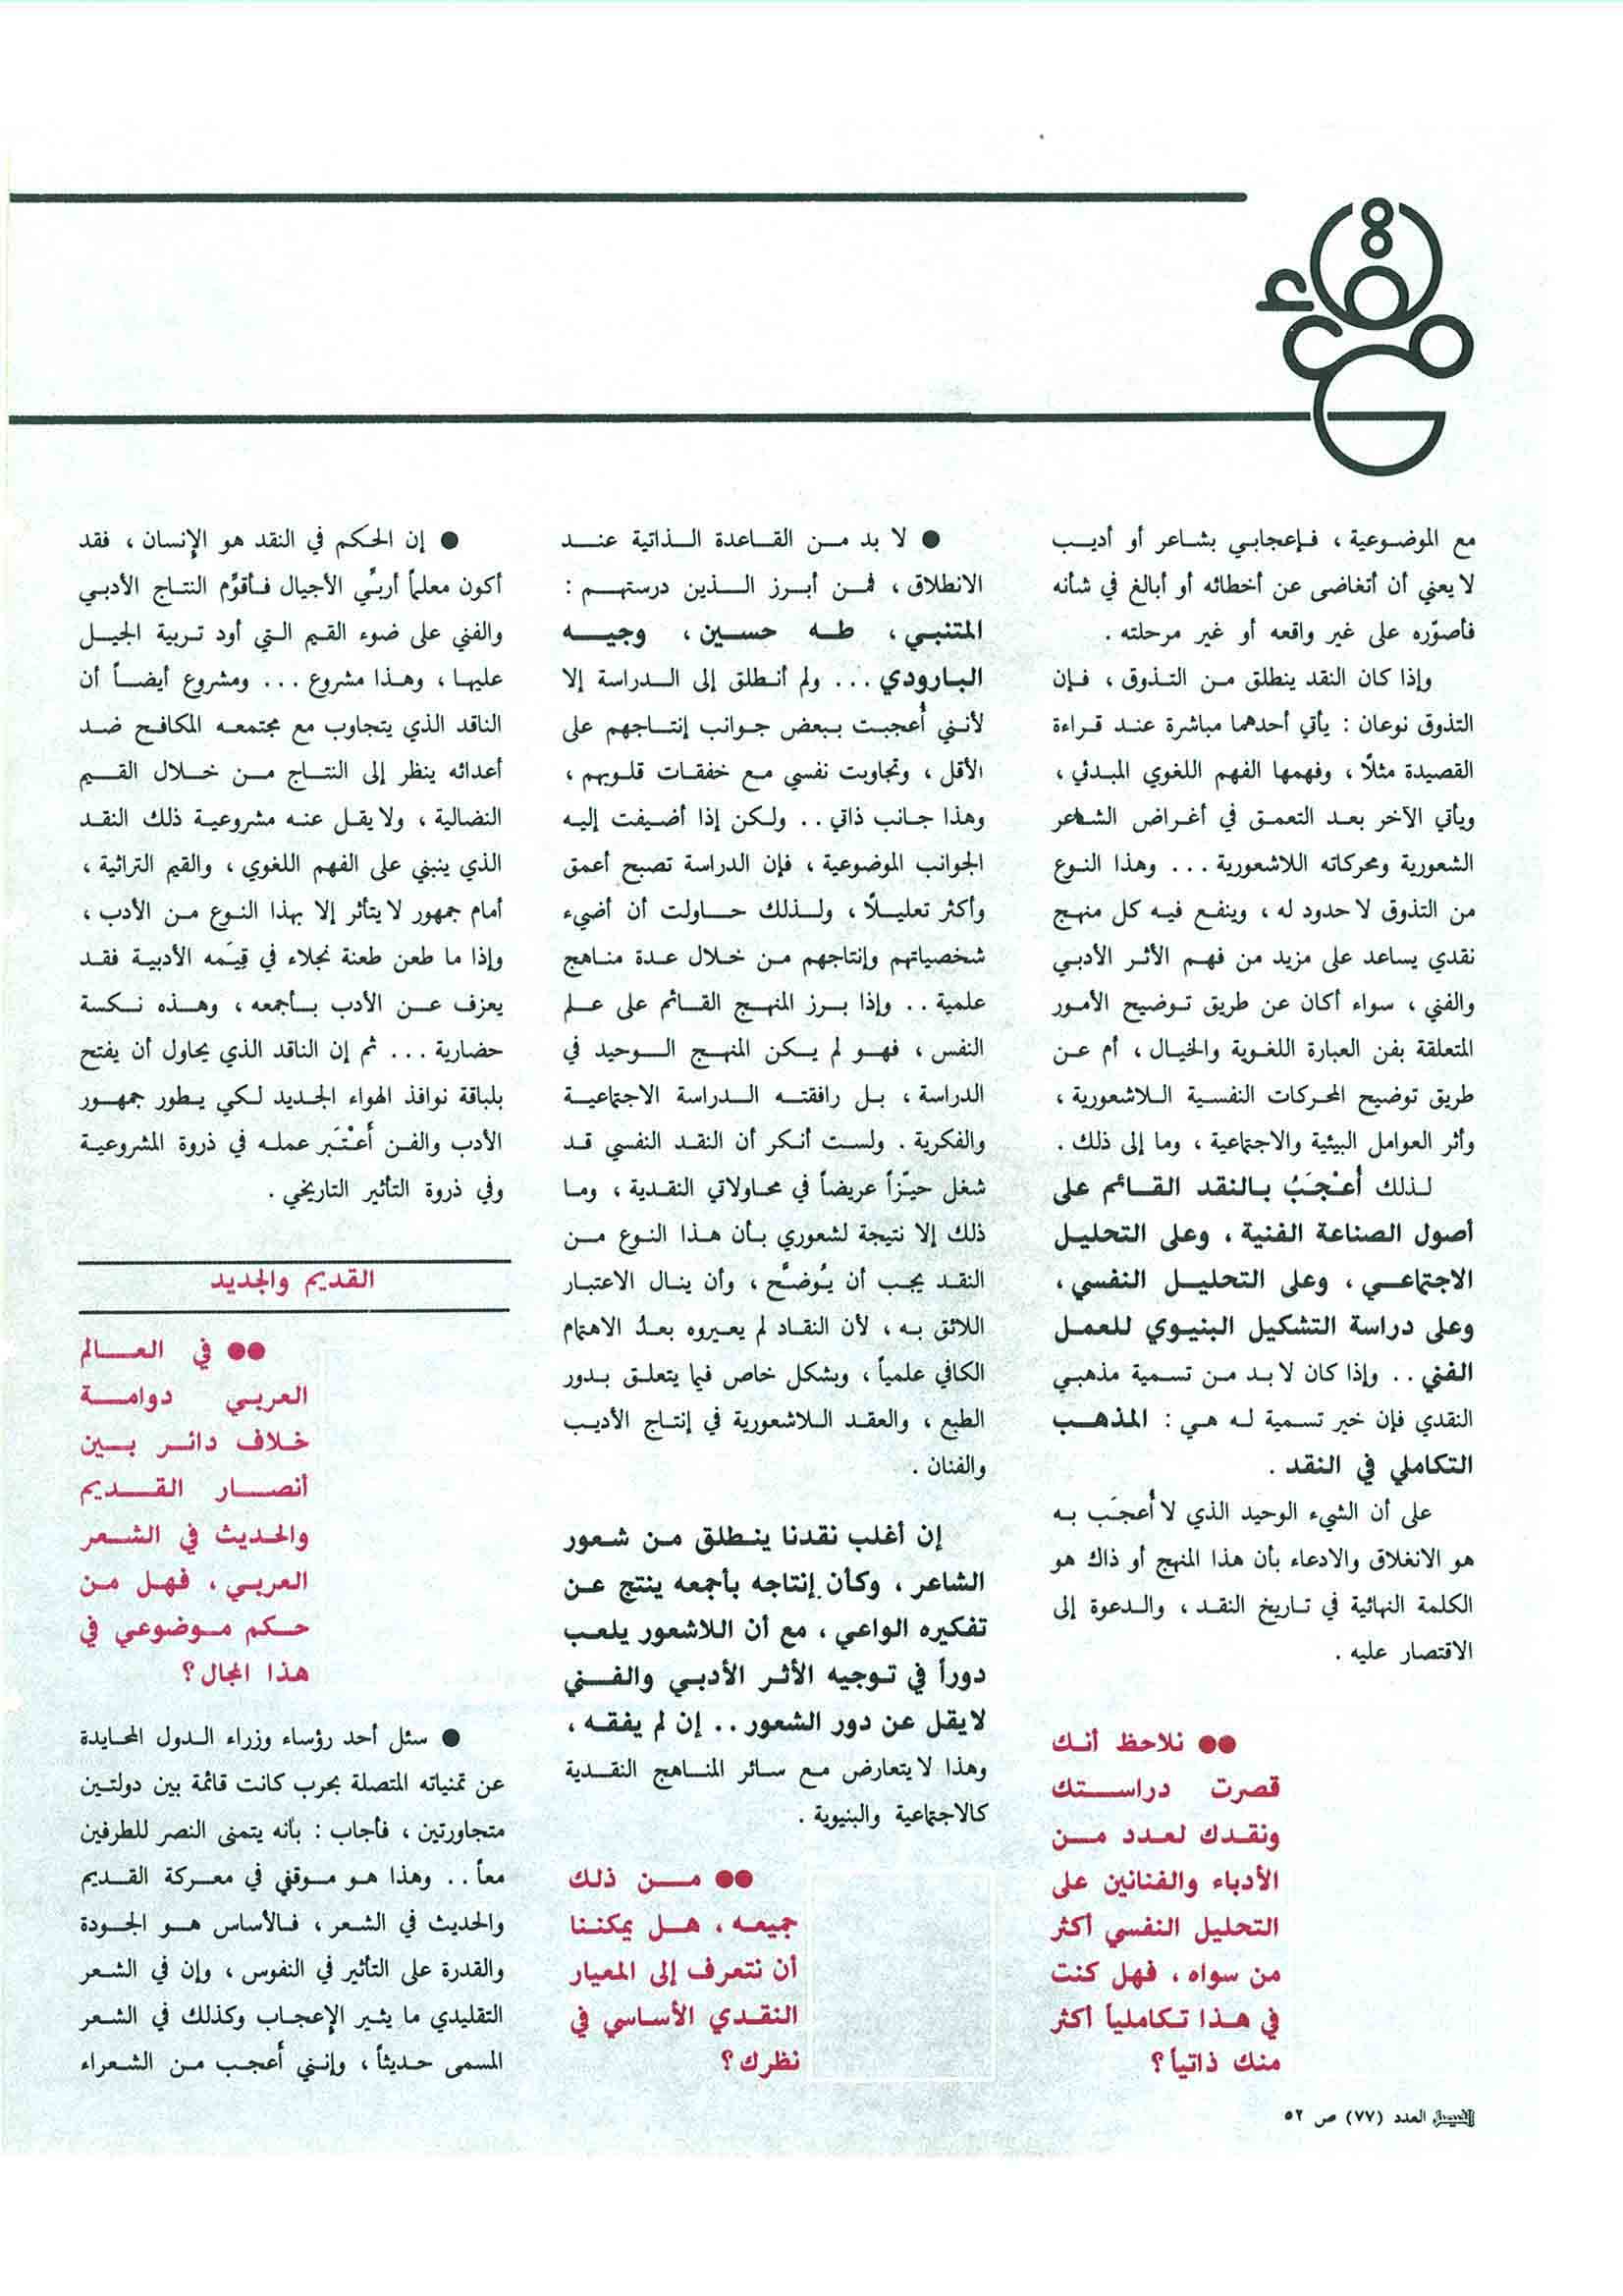 مع الموضوعية ، فإعجابي بشاعر أو أديب
لا يعني أن أتغاضى عن أخطائه أو أبالغ في شأنه
فأصوّره على غير واقعه أو غير مرحلته .
وإذا كان النقد ينطلق من التذوق ، فإن
التذوق نوعان : يأتي أحدهما مباشرة عند قراءة
القصيدة مثلاً ، وفهمها الفهم اللغوي المبدئي ،
ويأتي الآخر بعد التعمق في أغراض الشاعر
الشعورية ومحركاته اللاشعورية ... وهذا النوع
من التذوق لا حدود له ، وينفع فيه كل منهج
نقدي يساعد على مزيد من فهم الأثر الأدبي
والفني ، سواء أكان عن طريق توضيح الأمور
المتعلقة بفن العبارة اللغوية والخيال ، أم عن
طريق توضيح المحركات النفسية اللاشعورية ،
وأثر العوامل البيئية والاجتماعية ، وما إلى ذلك .
لذلك أُعْجَبُ بالنقد القائم على
أصول الصناعة الفنية ، وعلى التحليل
الاجتماعي ، وعلى التحليل النفسي ،
وعلى دراسة التشكيل البنيوي للعمل
الفني .. وإذا كان لا بد من تسمية مذهبي
النقدي فإن خير تسمية له هي : المذهب
التكاملي في النقد .
على أن الشيء الوحيد الذي لا أُعجَب به
هو الانغلاق والادعاء بأن هذا المنهج أو ذاك هو
الكلمة النهائية في تاريخ النقد ، والدعوة إلى
الاقتصار عليه .
●● نلاحظ أنك
قصرت دراستك
ونقدك لعدد من
الأدباء والفنانين على
التحليل النفسي أكثر
من سواه ، فهل كنت
في هذا تكاملياً أكثر
منك ذاتياً ؟
● لا بد من القاعدة الذاتية عند
الانطلاق ، فمن أبرز الذين درستهم :
المتنبي ، طه حسين ، وجيه
البارودي ... ولم أنطلق إلى الدراسة إلا
لأنني أُعجبت ببعض جوانب إنتاجهم على
الأقل ، وتجاوبت نفسي مع خفقات قلوبهم ،
وهذا جانب ذاتي .. ولكن إذا أضيفت إليه
الجوانب الموضوعية ، فإن الدراسة تصبح أعمق
وأكثر تعليلاً ، ولذلك حاولت أن أضيء
شخصياتهم وإنتاجهم من خلال عدة مناهج
علمية .. وإذا برز المنهج القائم على علم
النفس ، فهو لم يكن المنهج الوحيد في
الدراسة ، بل رافقته الدراسة الاجتماعية
والفكرية . ولست أنكر أن النقد النفسي قد
شغل حيّزاً عريضاً في محاولاتي النقدية ، وما
ذلك إلا نتيجة لشعوري بأن هذا النوع من
النقد يجب أن يُوضَّح ، وأن ينال الاعتبار
اللائق به ، لأن النقاد لم يعيروه بعدُ الاهتمام
الكافي علمياً ، وبشكل خاص فيما يتعلق بدور
الطبع ، والعقد اللاشعورية في إنتاج الأديب
والفنان .
إن أغلب نقدنا ينطلق من شعور
الشاعر ، وكأن إنتاجه بأجمعه ينتج عن
تفكيره الواعي ، مع أن اللاشعور يلعب
دوراً في توجيه الأثر الأدبي والفني
لا يقل عن دور الشعور .. إن لم يفقه ،
وهذا لا يتعارض مع سائر المناهج النقدية
كالاجتماعية والبنيوية .
●● من ذلك
جميعه ، هل يمكننا
أن نتعرف إلى المعيار
النقدي الأساسي في
نظرك ؟
● إن الحكم في النقد هو الإنسان ، فقد
أكون معلماً أربّي الأجيال فأقوّم النتاج الأدبي
والفني على ضوء القيم التي أود تربية الجيل
عليها ، وهذا مشروع ... ومشروع أيضاً أن
الناقد الذي يتجاوب مع مجتمعه المكافح ضد
أعدائه ينظر إلى النتاج من خلال القيم
النضالية ، ولا يقل عنه مشروعية ذلك النقد
الذي ينبني على الفهم اللغوي ، والقيم التراثية ،
أمام جمهور لا يتأثر إلا بهذا النوع من الأدب ،
وإذا ما طعن طعنة نجلاء في قِيَمه الأدبية فقد
يعزف عن الأدب بأجمعه ، وهذه نكسة
حضارية ... ثم إن الناقد الذي يحاول أن يفتح
بلباقة نوافذ الهواء الجديد لكي يطور جمهور
الأدب والفن أَعْتَبر عمله في ذروة المشروعية
وفي ذروة التأثير التاريخي .
القديم والجديد
●● في العالم
العربي دوامة
خلاف دائر بين
أنصار القديم
والحديث في الشعر
العربي ، فهل من
حكم موضوعي في
هذا المجال ؟
● سئل أحد رؤساء وزراء الدول المحايدة
عن تمنياته المتصلة بحرب كانت قائمة بين دولتين
متجاورتين ، فأجاب : بأنه يتمنى النصر للطرفين
معاً .. وهذا هو موقفي في معركة القديم
والحديث في الشعر ، فالأساس هو الجودة
والقدرة على التأثير في النفوس ، وإن في الشعر
التقليدي ما يثير الإعجاب وكذلك في الشعر
المسمى حديثاً ، وإنني أعجب من الشعراء
الفيصل العدد (٧٧) ص ٥٢